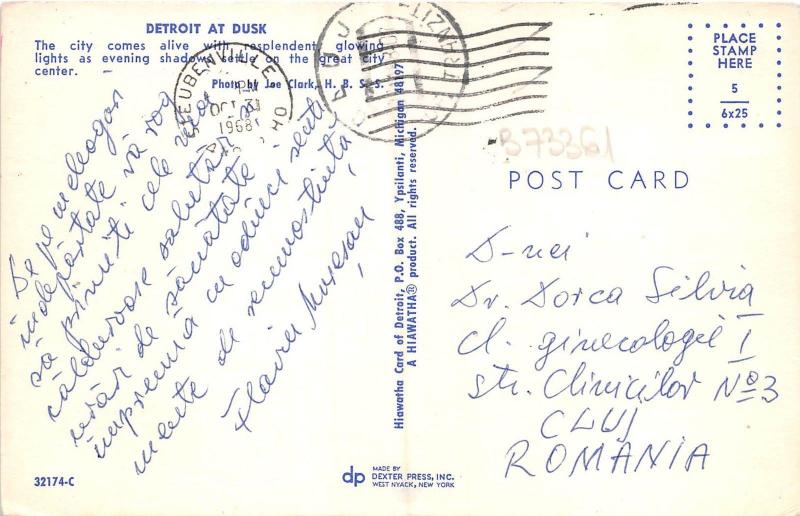 DETROIT AT DUSK
The city comes alive with resplendent, glowing
lights as evening shadows settle on the great city
center.
Photo by Joe Clark, H. B. S. S.
STEUBENVILLE
PM
OCT 31
1968
OHIO
CLUJ
PLACE
STAMP
HERE
5
6x25
B73361
POST CARD
De pe meleaguri
îndepărtate vă rog
să primiți cele mai
călduroase salutări și
urări de sănătate
împreună cu adînci senti
mente de recunoștință
Flaviu Mureșan
Hiawatha Card of Detroit, P.O. Box 488, Ypsilanti, Michigan 48197
A HIAWATHA® product. All rights reserved.
D-nei
Dr. Dorca Silvia
cl. ginecologie I
str. Clinicilor No 3
CLUJ
ROMANIA
32174-C
dp
MADE BY
DEXTER PRESS, INC.
WEST NYACK, NEW YORK